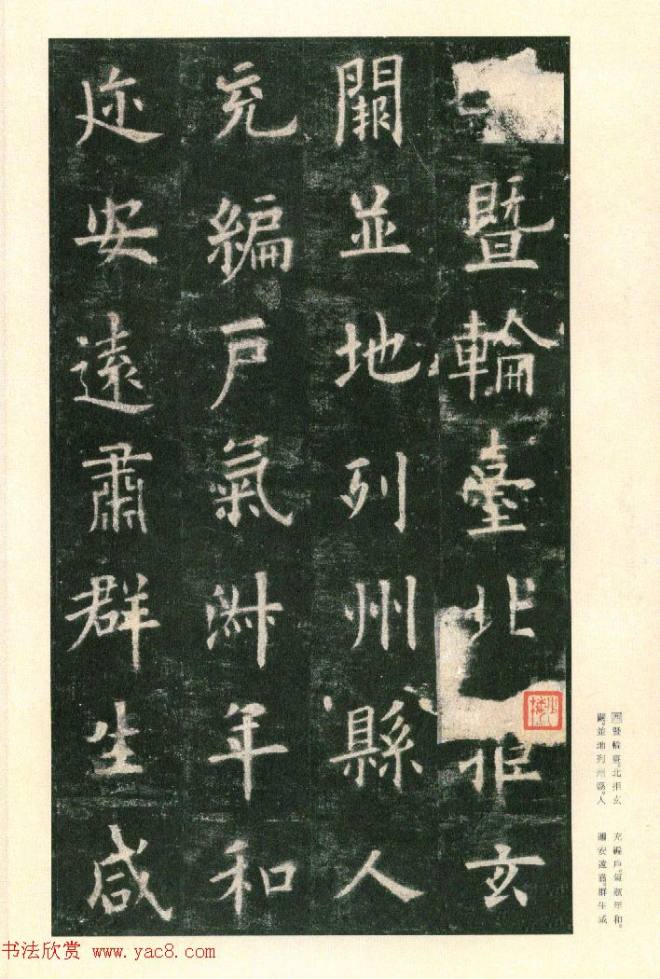 暨輪臺北拒玄
闕並地列州縣人
充編戶氣淑年和
迩安遠肅群生咸
西暨輪臺。北拒玄
闕。並地列州縣。人
充編戶。氣淑年和。
邇安遠肅。群生咸
书法欣赏 www.yac8.com